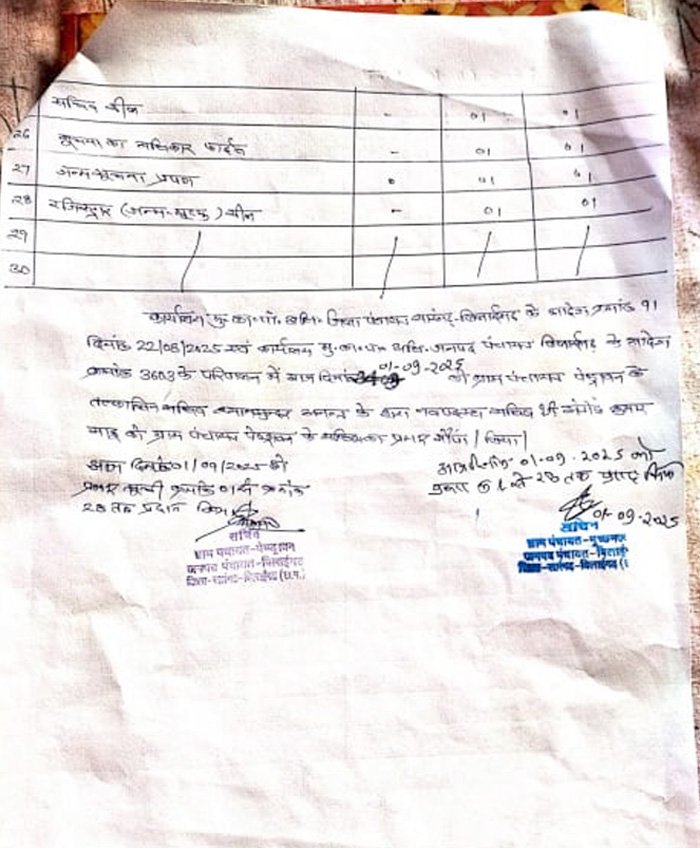 सचिव सील - 01 01
26 सूचना का अधिकार फाईल - 01 01
27 जन्म सूचना प्रपत्र 0 01 01
28 रजिस्ट्रार (जन्म-मृत्यु) सील - 01 01
29
30
कार्यालय मु.का.पा. अधि. जिला पंचायत सारंगढ़-बिलाईगढ़ के आदेश क्रमांक 91
दिनांक 22/08/2025 एवं कार्यालय मु.का.पा. अधि. जनपद पंचायत बिलाईगढ़ के आदेश
क्रमांक 3603 के परिपालन में आज दिनांक 01-09-2025 को ग्राम पंचायत के
तत्कालिन सचिव के द्वारा नवपदस्थ सचिव श्री कुमार
साहू को ग्राम पंचायत के सचिव का प्रभार सौंपा / लिया।
आज दिनांक 01/09/2025 को
प्रभार सूची क्रमांक 01 से क्रमांक
28 तक प्रदान किया
आज दिनांक 01-09-2025 को
प्रभार 01 से 28 तक प्राप्त किया
01-09-2025
सचिव
ग्राम पंचायत-
जनपद पंचायत-बिलाईगढ़
जिला-सारंगढ़-बिलाईगढ़ (छ.ग.)
सचिव
ग्राम पंचायत-
जनपद पंचायत-बिलाईगढ़
जिला-सारंगढ़-बिलाईगढ़ (